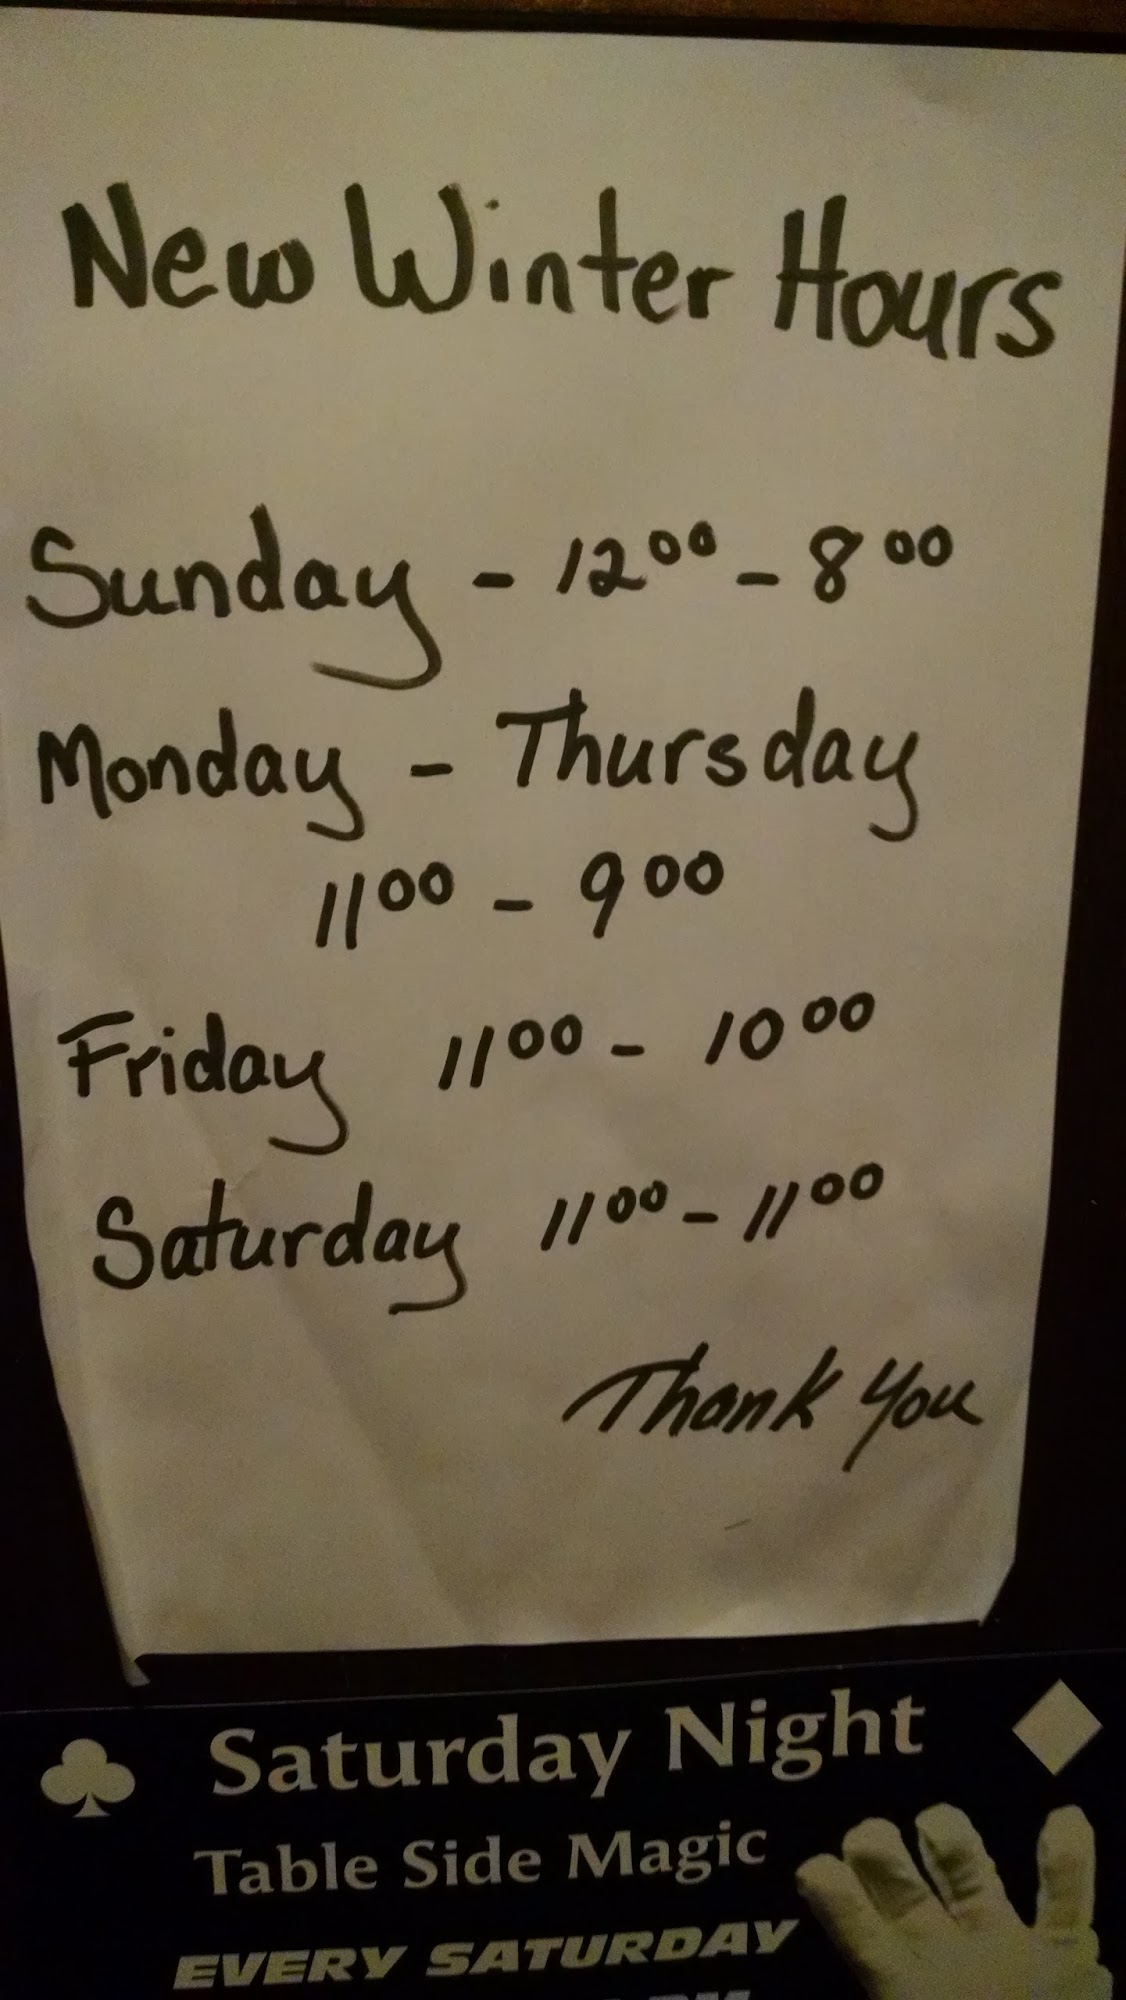 New Winter Hours
Sunday - 12⁰⁰ - 8⁰⁰
Monday - Thursday
11⁰⁰ - 9⁰⁰
Friday 11⁰⁰ - 10⁰⁰
Saturday 11⁰⁰ - 11⁰⁰
Thank You
Saturday Night
Table Side Magic
EVERY SATURDAY